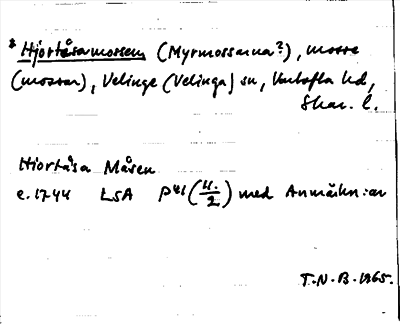 * Hjortåsamossen (Myrmossarna?), mosse
(mossar), Velinge (Velinga) sn, Vartofta hd,
Skar. l.
Hiortåsa Måsen
c. 1744 LSA P41 (4:/2) med Anmärkn:ar
T.N.B. 1965.